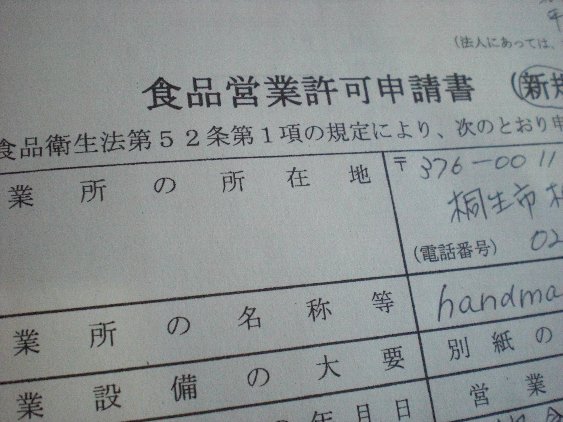 (法人にあっては、
食品営業許可申請書 (新規
食品衛生法第52条第1項の規定により、次のとおり申
業所の所在地 〒376-0011
桐生市
(電話番号) 02
業所の名称等 handma
業設備の大要 別紙の
年月日 営業